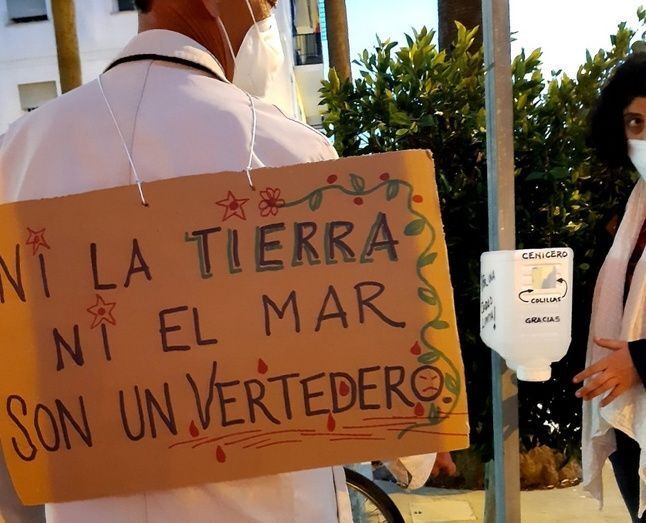 NI LA TIERRA
NI EL MAR
SON UN VERTEDERO.
CENICERO
COLILLAS
GRACIAS